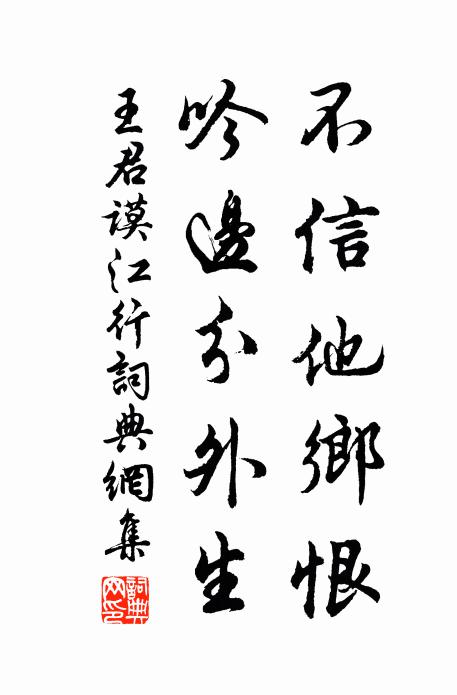 不信他鄉恨
吟邊分外生
王君謨江行詞典網集
詞典網印